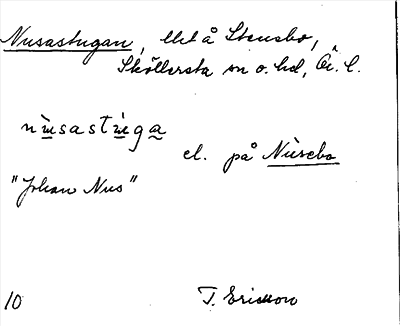 Nusastugan, lht å Stensbo,
Sköllersta sn o. hd, Ör. l.
nùsastùga
el. på Nùsebo
"Johan Nus"
10 T. Ericsson